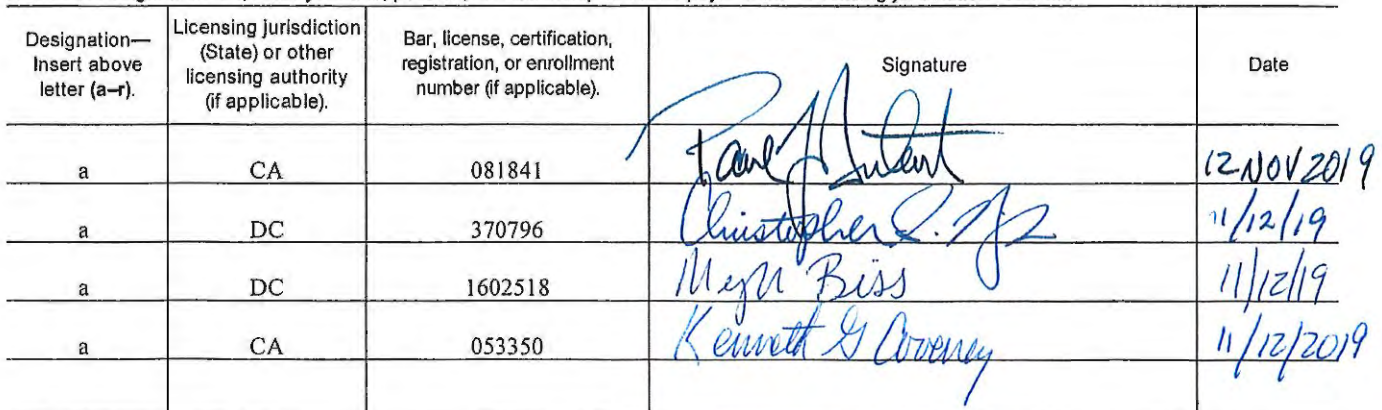 Designation— Insert above letter (a–r). Licensing jurisdiction (State) or other licensing authority (if applicable). Bar, license, certification, registration, or enrollment number (if applicable). Signature Date
a CA 081841 Paul J 12 NOV 2019
a DC 370796 Christopher S. 11/12/19
a DC 1602518 Biss 11/12/19
a CA 053350 Kenneth G Coveney 11/12/2019